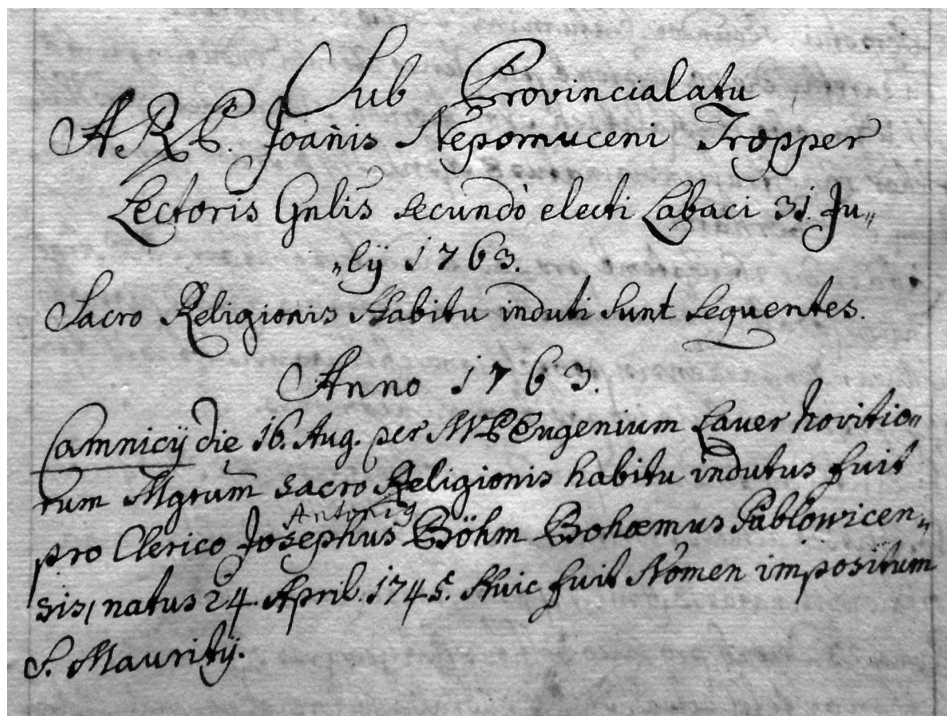 Sub Provincialatu
A. R. P. Joañis Nepomuceni Tropper
Lectoris Gnlis secundò electi Labaci 31. Ju„
„lÿ 1763.
Sacro Religionis Habitu induti sunt sequentes.
Anno 1763.
Camnicÿ die 16. Aug. per V. P. Eugenium Lauer Novitio„
rum Mgrum sacro Religionis habitu indutus fuit
Antoniq
pro Clerico Josephus Böhm Bohœmus Gablowicen„
sis, natus 24. April. 1745. Huic fuit Nomen impositum
S. Mauritÿ.